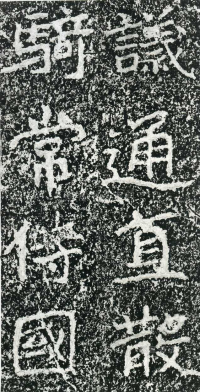 議通直散
騎常侍國